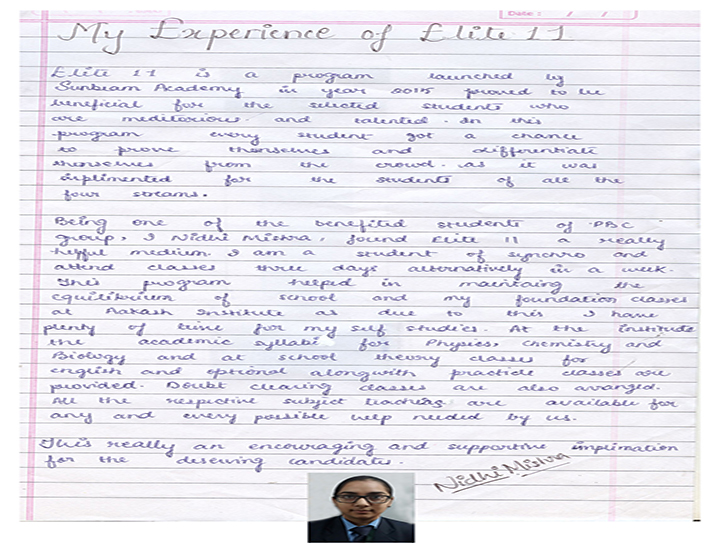 Date : / /
My Experience of Elite 11
Elite 11 is a program launched by
Sunbeam Academy in year 2015 proved to be
beneficial for the selected students who
are meditorious and talented. In this
program every student got a chance
to prove themselves and differentiate
themselves from the crowd. As it was
implimented for the students of all the
four streams.
Being one of the benefited students of PBC
group, I Nidhi Mishra, found Elite 11 a really
helpful medium. I am a student of synchro and
attend classes three days alternatively in a week.
This program helped in maintaing the
equilibrium of school and my foundation classes
at Aakash Institute as due to this I have
plenty of time for my self studies. At the institute
the academic syllabi for Physics, Chemistry and
Biology and at school theory classes for
english and optional alongwith practicle classes are
provided. Doubt clearing classes are also arranged.
All the respective subject teachers are available for
any and every possible help needed by us.
This really an encouraging and supportive implimation
for the deserving candidates.
Nidhi Mishra